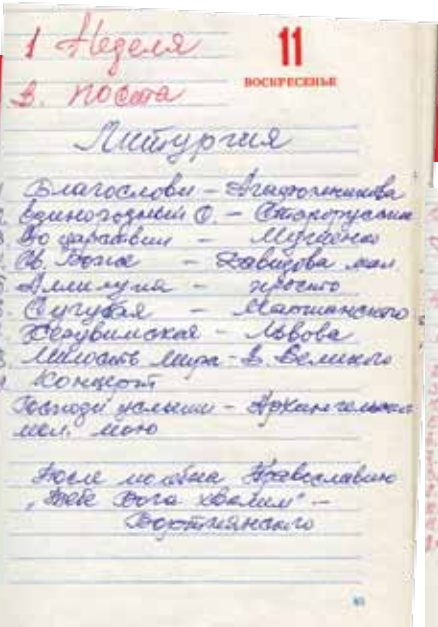 1 Неделя
11
ВОСКРЕСЕНЬЕ
В. поста
Литургия
Благослови – Агафонникова
Единородный С. –
Во царствии –
Св. Боже – Давидова мал.
Аллилуия – просто
Сугубая –
Херувимская – Львова
Милость мира – В. Великого
Концерт
Господи услыши – Архангельского
мол. мою
После молебна Православию
„Тебе Бога хвалим" –
Бортнянского